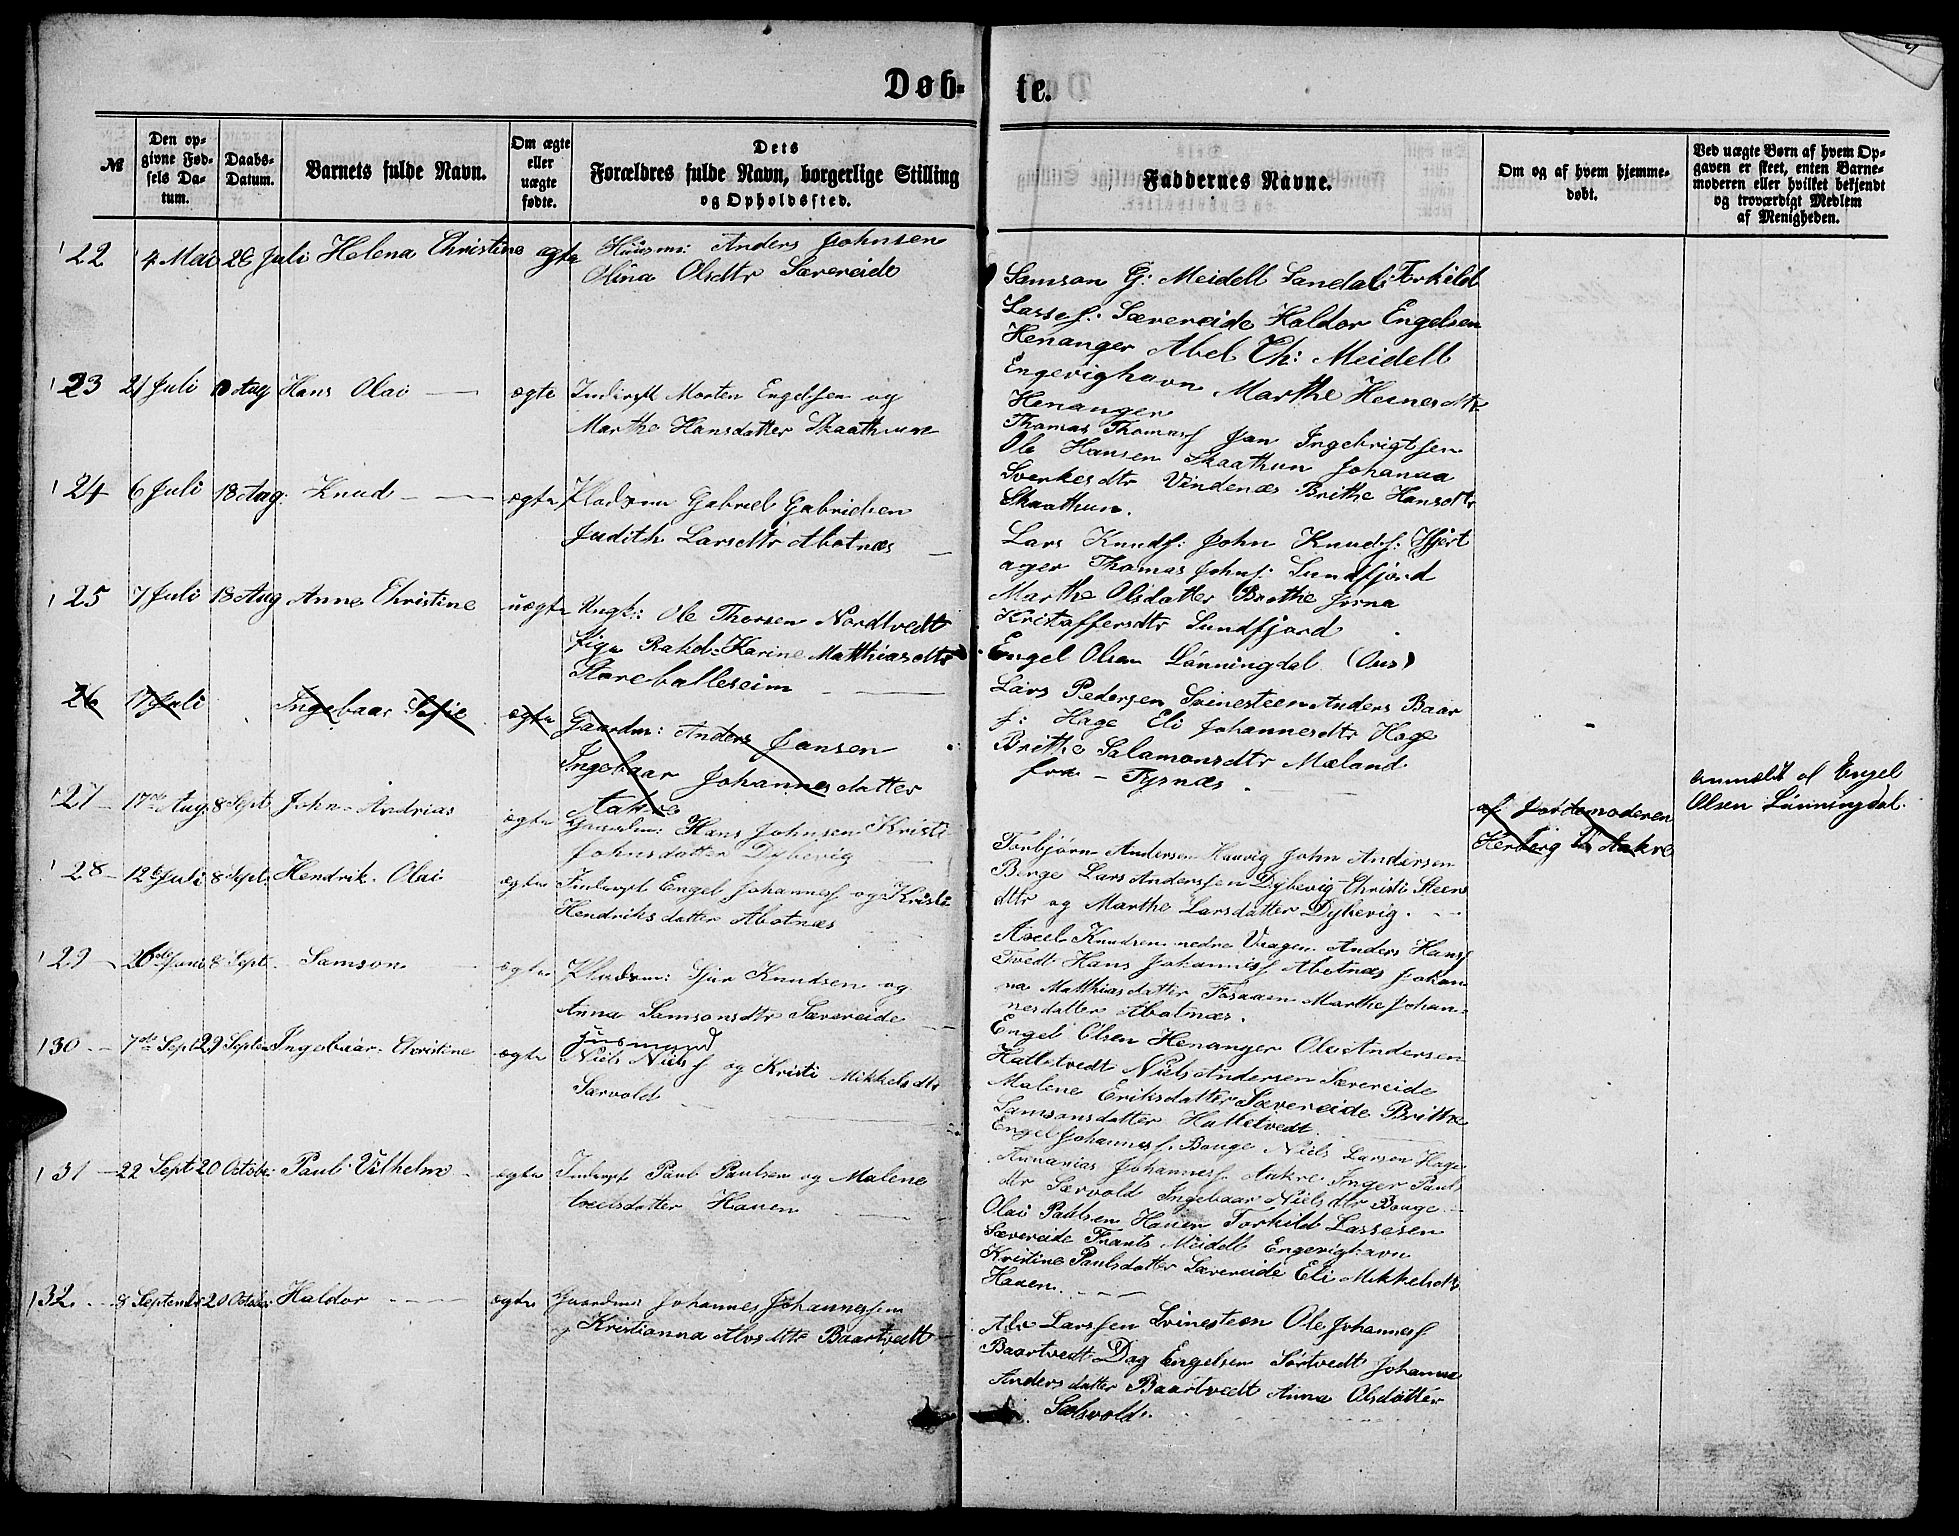 Døb-
te.
№
Den op-
givne Fød-
sels Da-
tum.
Daabs-
Datum.
Barnets fulde Navn.
Om ægte
eller
uægte
fødte.
Dets
Forældres fulde Navn, borgerlige Stilling
og Opholdssted.
Faddernes Navne.
Om og af hvem hjemme-
døbt.
Ved uægte Børn af hvem Op-
gaven er skeet, enten Barne-
moderen eller hvilket bekjendt
og troværdigt Medlem
af Menigheden.
22 4 Mai 28 Juli Helena Christine ægte Huusm: Anders Johnsen
Stina Olsdtr Sævereide
Samson G: Meidell Sandal Torkild
Lasses: Sævereide Haldor Engelsen
Henanger Abel Ch: Meidell
Engevighavn Marthe Heinesdtr
Henanger
23 21 Juli Aug Hans Olai ægte Inderst Morten Engelsen og
Marthe Hansdatter Skaathun
Thomas Thomass Jan Ingebrigtsen
Ole Hansen Skaathun Johanna
Sverkesdtr Vindenæs Brithe Hansdtr
Skaathun.
24 6 Juli 18 Aug. Knud ægte Pladsm Gabriel Gabrielsen
Judith Larsdtr Abotnæs
Lars Knuds: John Knuds: Hjert
ager Thomas Johns: Sundfjord
Marthe Olsdatter Brethe Jorna
Kristoffersdtr Sundfjord
25 7 Juli 18 Aug Anne Christine uægte Ungk: Ole Thorsen Nordtvedt
Pige Rakel Karine Matthiasdtr
Storeballeseim
Engel Olsen Lønningdal (Aus)
Lars Pedersen Svinesteen Anders Baar
s: Hage Eli Johannesdtr Hage
Brithe Salamonsdtr Mæland
fra Tysnæs
anmeldt af Engel
Olsen Lønningdal.
26 17 Juli Ingebaar Sofie ægte Gaardm: Anders Jansen
Ingebaar Johannesdatter
Aakre
af Jordemoderen
Herborg Aakre
27 17de Aug. 8 Sept John Andrias ægte Gaardm: Hans Johnsen Kristi
Johnsdatter Dybevig
Torbjørn Andersen Hauvig John Andersen
Berge Lars Anderssen Dybevig Christi Steens
dtr og Marthe Larsdatter Dybevig.
28 12te Juli 8 Sept. Hendrik Olai ægte Inderst Engel Johanness og Kristi
Hendriksdatter Abotnæs
Axel Knudsen nedre Vaagen Anders Hans
Tvedt Hans Johanness Abotnæs Johan
na Matthiasdatter Fosaaen Marthe Johan-
nesdatter Abotnæs.
29 26de Juni 8 Sept. Samson ægte Pladsm: Sjur Knudsen og
Anna Samsonsdtr Sævereide
Engel Olsen Henanger Ole Andersen
Hattetvedt Niels Andersen Sævereide
Malene Eriksdatter Sævereide Brithe
Samsonsdatter Hattetvedt
30 7de Sept 29 Septem Ingebaar Christine ægte Husmand
Niels Niels og Kristi Mikkelsdtr
Særvold
Engel Johanness. Bouge Niels Larsen Hage
Annanias Johanness. Aakre Inger Pauls
dtr Særvold Ingebaar Nielsdtr Bouge
31 22 Sept 20 Octobe: Paul Vilhelm ægte Inderst Paul Paulsen og Malene
Axelsdatter Hauen
Olai Paulsen Hauen Torkild Lassesen
Sævereide Frants Meidell Engevighavn
Kristine Paulsdatter Sævereide Eli Mikkelsdtr
Hauen.
32 8 September 20 October Haldor ægte Gaardm: Johannes Johannessen
og Kristianna Alvsdtr Baartvedt
Alv Larssen Svinesteen Ole Johanness
Baartvedt Dag Engelsen Sørtvedt Johanna
Andersdatter Baartvedt Anna Olsdatter
Sælvold.